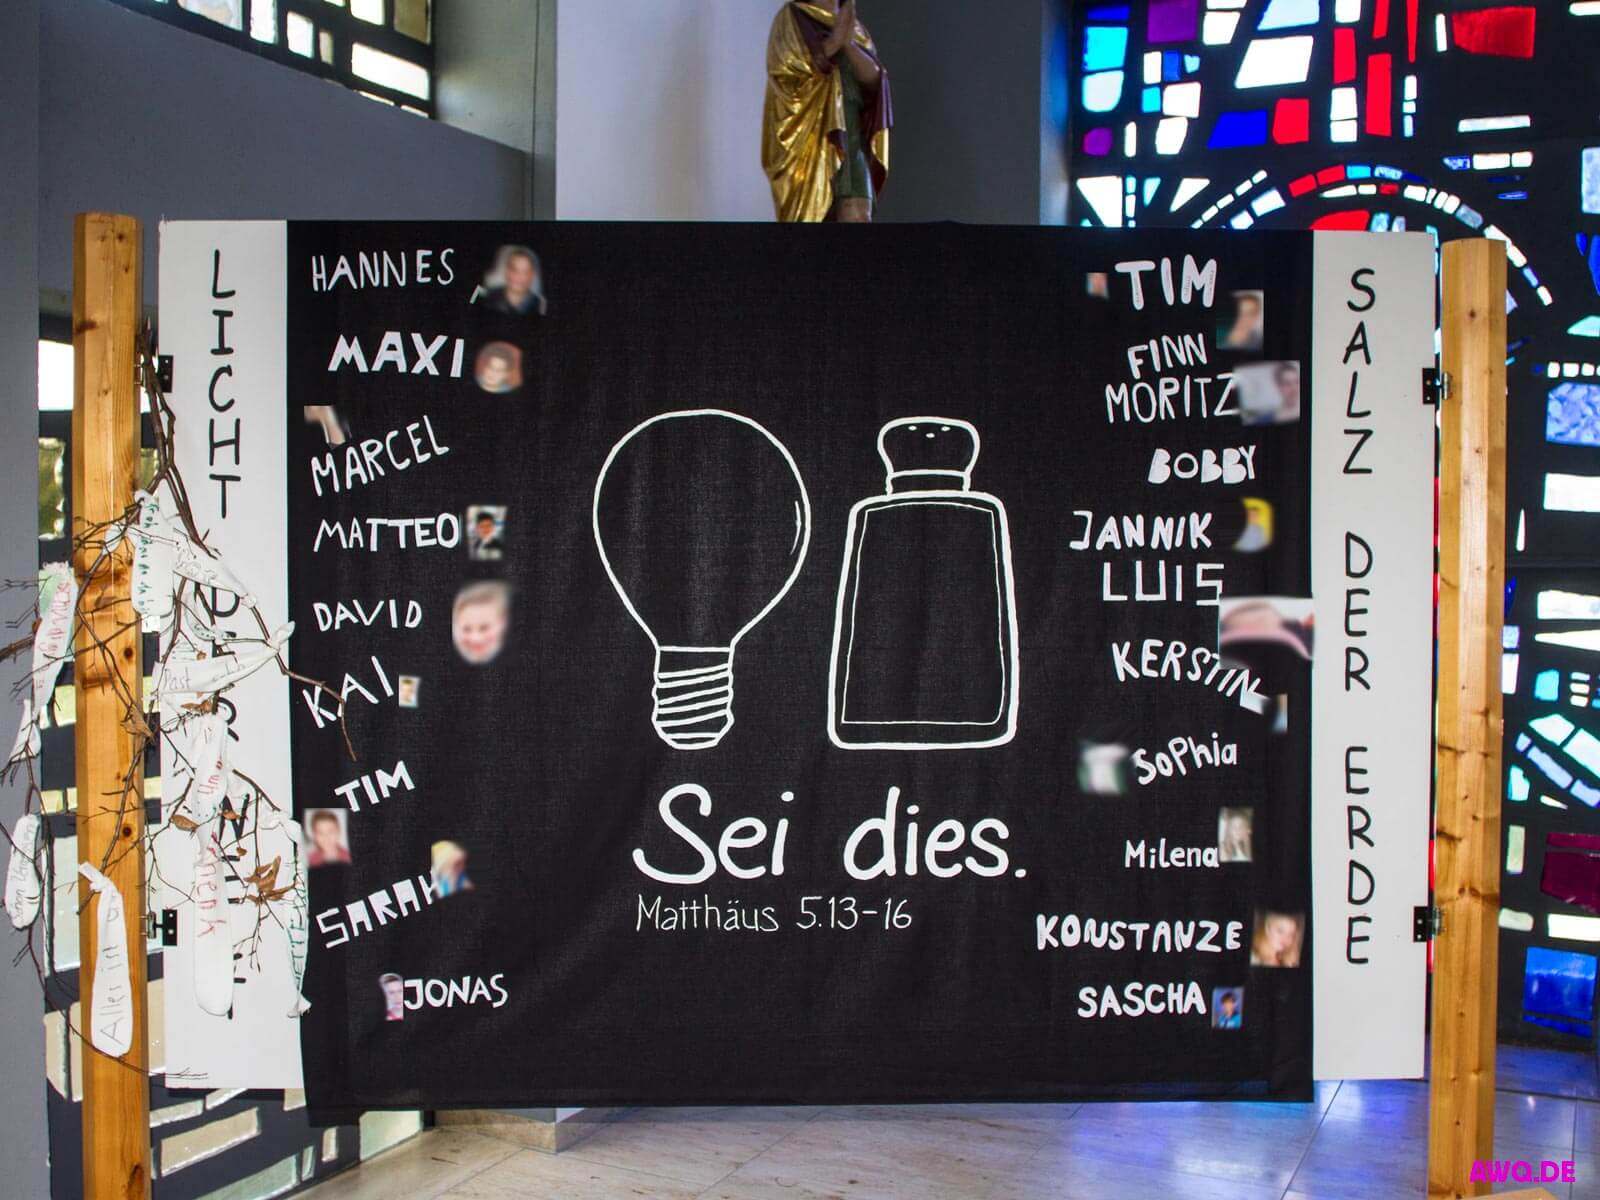 LICHT
HANNES
MAXI
MARCEL
MATTEO
DAVID
KAI
TIM
SARAH
JONAS
Sei dies.
Matthäus 5.13-16
TIM
FINN
MORITZ
BOBBY
JANNIK
LUIS
KERSTIN
Sophia
Milena
KONSTANZE
SASCHA
SALZ DER ERDE
Alles ist
AWQ.DE